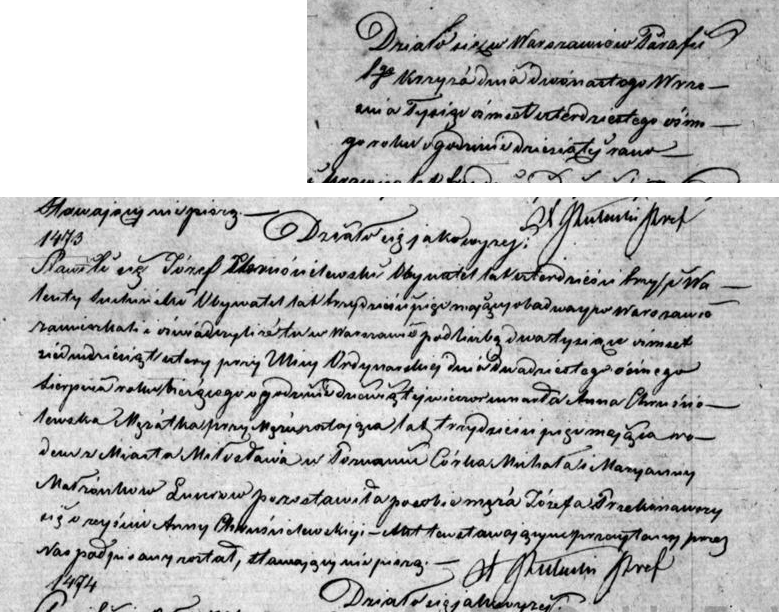 Działo się w Warszawie w Parafii
Sgo Krzyża dnia dwónastego Wrze-
śnia Tysiąc ośmset czterdziestego ósme-
go roku o godzinie dziesiątéj rano
Stawający niepiszą.
1473
Działo się jak owyzej.
Stawili się Józef Chruścilewski Obywatel lat czterdzieści trzy, i Wa-
lenty Obywatel lat trzydzieści pięć mający obadway w Warszawie
zamieszkali i oświadczyli iż tu w Warszawie pod liczbą dwa tysiące ośmset
siedmdziesiąt cztery przy Ulicy Ordynackiej dnia dwudziestego ósmego
Sierpnia roku bieżącego o godzinie dziewiątej wieczór umarła Anna Chruści-
lewska Mężatka przy Mężu zostająca lat trzydzieści pięć mająca ro-
dem z Miasta Miłosławia w Poznaniu Córka Michała i Maryanny
Małżonków pozostawiła po sobie męża Józefa Przekonawszy
się o zejściu Anny Chruścilewskiej – Akt ten stawającym przeczytany przez
Nas podpisany został, stawający niepiszą.
1474
Działo się jak owyzej.